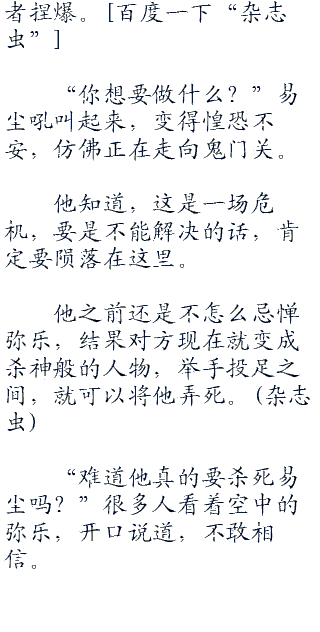 者捏爆。[百度一下“杂志
虫”]
“你想要做什么？”易
尘吼叫起来，变得惶恐不
安，仿佛正在走向鬼门关。
他知道，这是一场危
机，要是不能解决的话，肯
定要陨落在这里。
他之前还是不怎么忌惮
弥乐，结果对方现在就变成
杀神般的人物，举手投足之
间，就可以将他弄死。(杂志
虫)
“难道他真的要杀死易
尘吗？”很多人看着空中的
弥乐，开口说道，不敢相
信。